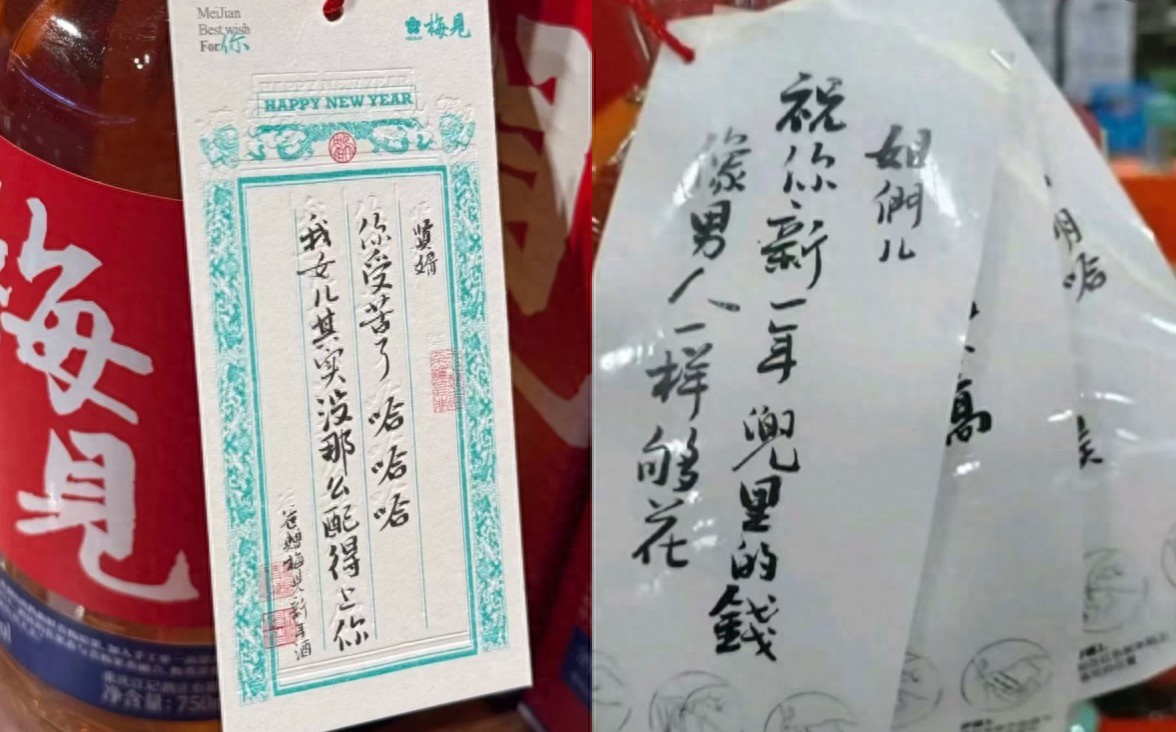 MeiJian
Best wish
For你
梅見
HAPPY NEW YEAR
賢婿
你受苦了 哈哈哈
我女儿其实没那么配得上你
爸赠梅見新年酒
梅見
净含量:750
姐們儿
祝你新一年 兜里的錢
像男人一样 够花
高
哈